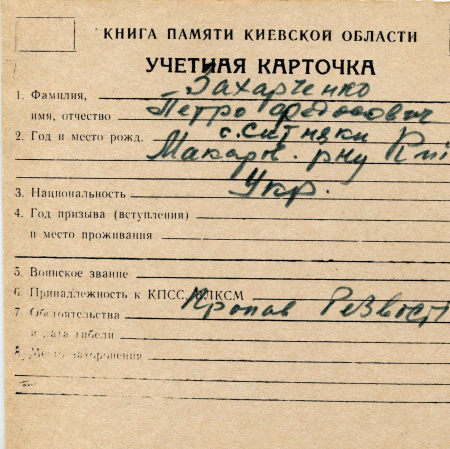 КНИГА ПАМЯТИ КИЕВСКОЙ ОБЛАСТИ
УЧЕТНАЯ КАРТОЧКА
1. Фамилия, Захарченко
имя, отчество Петро Федосович
2. Год и место рожд. с. Ситняки
Макарів. р-ну
3. Национальность Укр.
4. Год призыва (вступления)
и место проживания
5. Воинское звание
6. Принадлежность к КПСС, ВЛКСМ
7. Обстоятельства Пропав
и дата гибели
8. Место захоронения